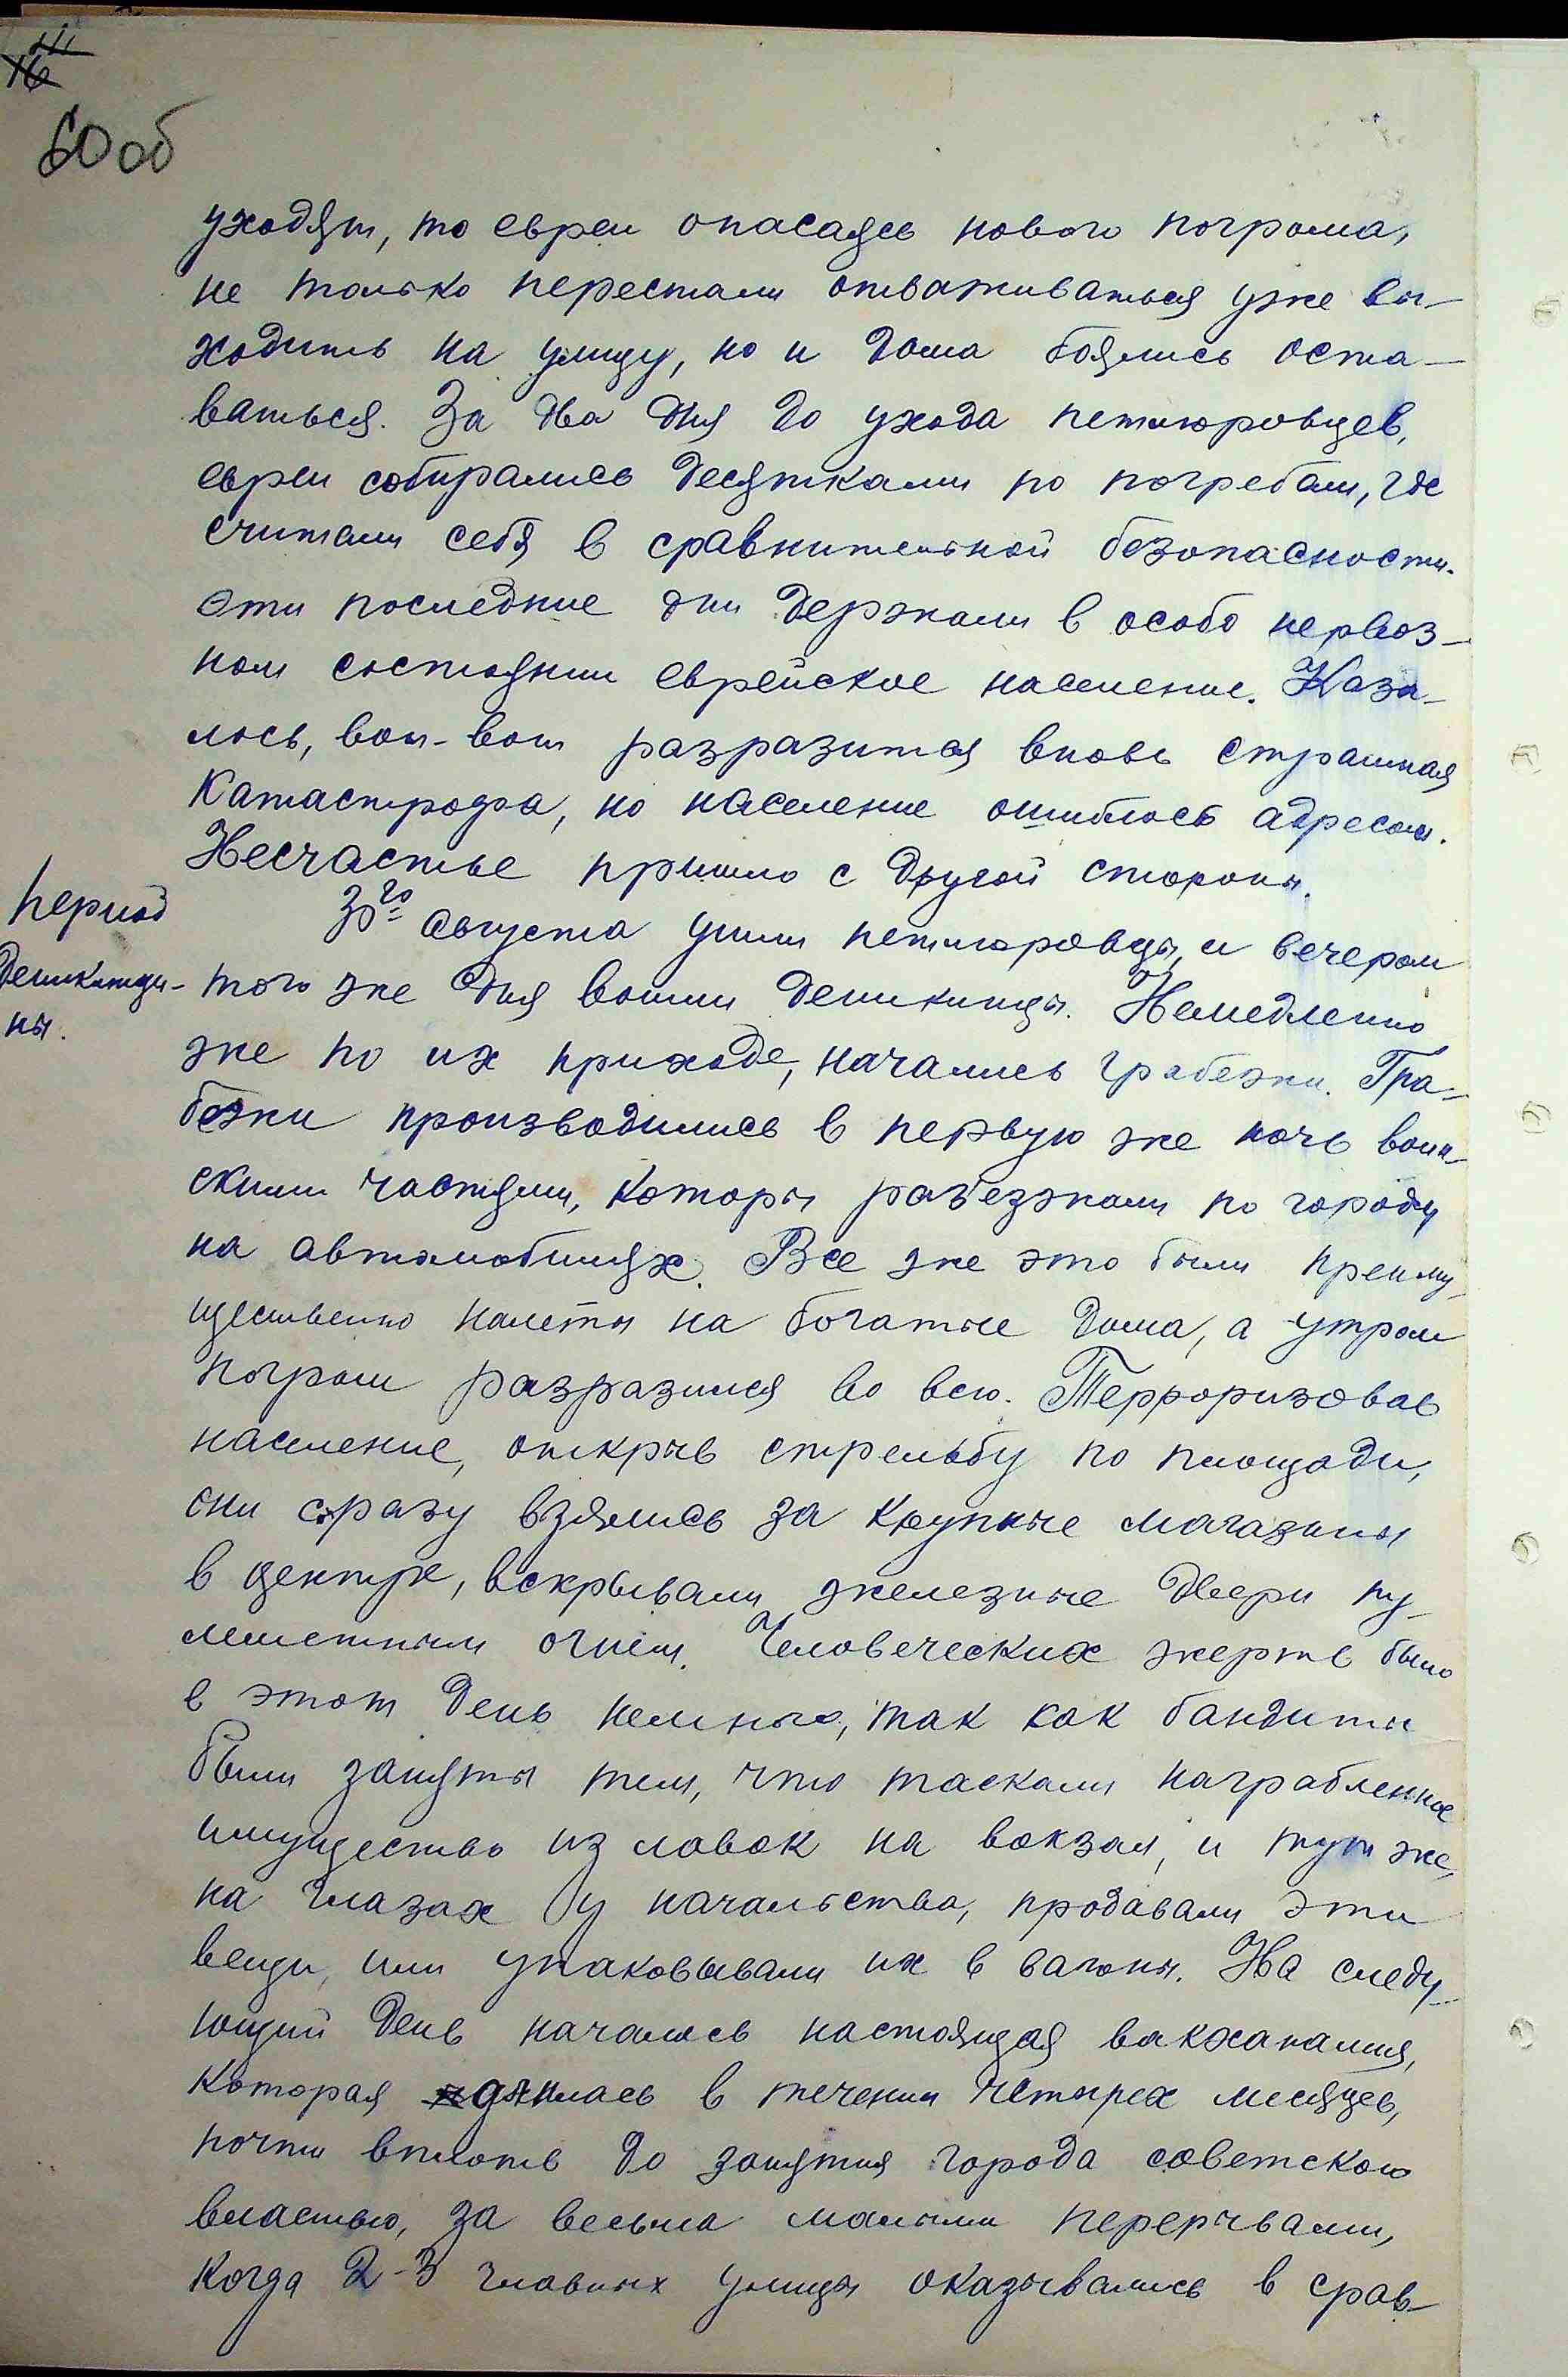 60 об
уходят, то евреи опасаясь нового погрома,
не только перестали отваживаться уже вы-
ходить на улицу, но и дома боялись оста-
ваться. За два дня до ухода петлюровцев,
евреи собирались десятками по погребам, где
считали себя в сравнительной безопасности.
Эти последние дни держали в особо нервоз-
ном состоянии еврейское население. Каза-
лось, вот-вот разразится вновь страшная
катастрофа, но население ошиблось адресом.
Несчастье пришло с другой стороны.
Период
деникинщи-
ны.
30го августа ушли петлюровцы, и вечером
того же дня вошли деникинцы. Немедленно
же по их приходе, начались грабежи. Гра-
бежи производились в первую же ночь воин-
скими частями, которы разъезжали по городу
на автомобилях. Все же это были преиму-
щественно налеты на богатые дома, а утром
погром разразился во всю. Терроризовав
население, открыв стрельбу по площади,
они сразу взялись за крупные магазины
в центре, вскрывали железные двери пу-
леметным огнем. Человеческих жертв было
в этот день немного, так как бандиты
были заняты тем, что таскали награбленное
имущество из лавок на вокзал, и тут же,
на глазах у начальства, продавали эти
вещи, или упаковывали их в вагоны. На следу-
ющий день началась настоящая вакханалия,
которая длилась в течении четырех месяцев,
почти вплоть до занятия города советскою
властью, за весьма малыми перерывами,
когда 2-3 главных улицы оказывались в срав-